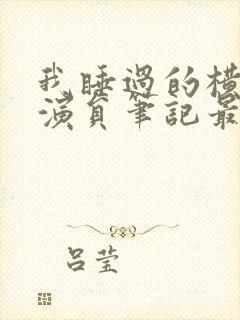 我睡過的橫
演員筆記最
呂莹